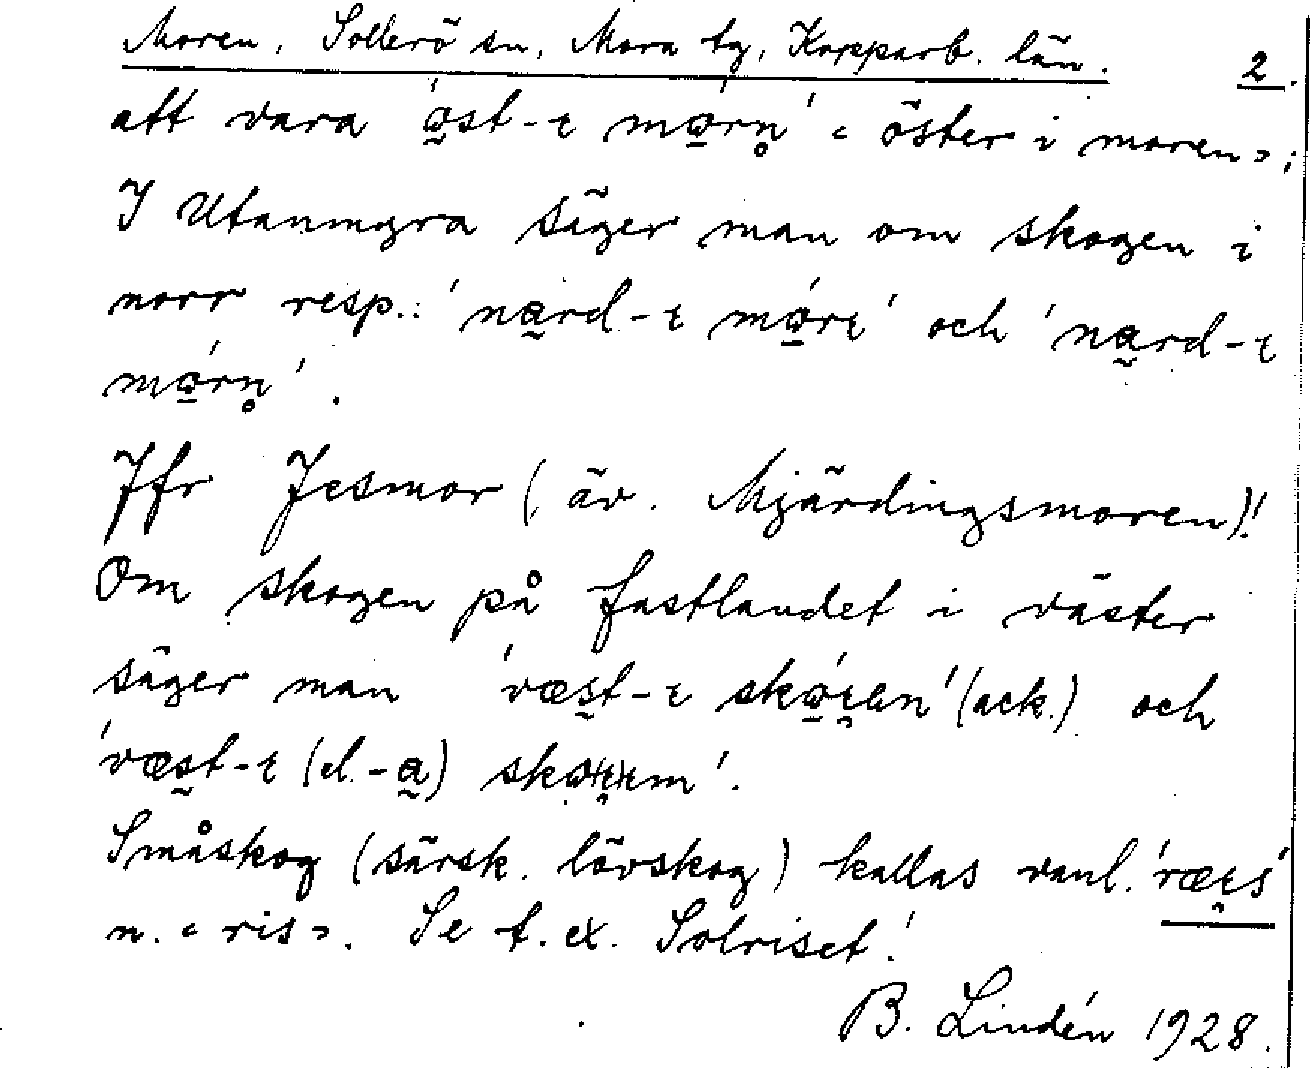 Moren, Sollerö sn, Mora tg, Kopparb. län. 2.
att vara 'ö̰st-ɩ mo̱rn̥' "öster i moren";
I Utanmyra säger man om skogen i
norr resp.: 'na̰rd-ɩ mo̱rɩ' och 'na̰rd-ɩ
mo̱rn̥'.
Jfr Jesmor (äv. Mjärdingsmoren)!
Om skogen på fastlandet i väster
säger man 'væs̰t-ɩ sko̱ɩ̯en' (ack.) och
'væs̰t-ɩ (el. -a̰)
Småskog (särsk. lövskog) kallas vanl. 'ræɩ̯s'
n. "ris". Se t.ex. Solriset!
B. Lindén 1928.